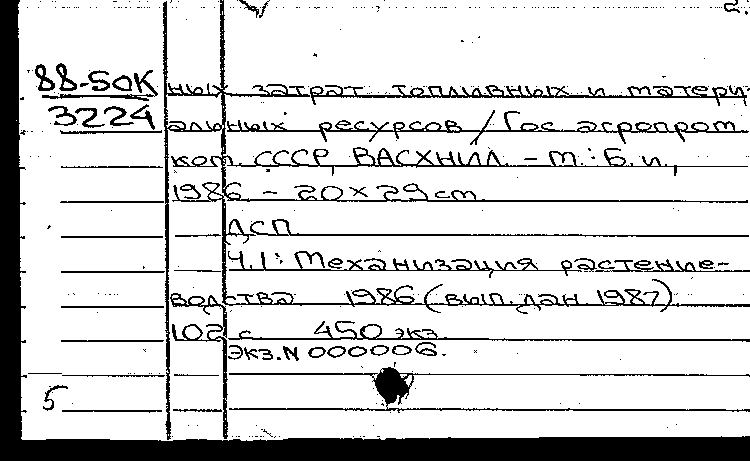 2.
88-50К ных затрат топливных и матери-
3224 альных ресурсов / Гос агропром.
ком. СССР, ВАСХНИЛ. - М.: Б. и.,
1986 - 20 x 29 cm.
ДСП
Ч.1: Механизация растение-
водства 1986 (вып. дан 1987).
102 с. 450 экз.
Экз. N 000006.
5